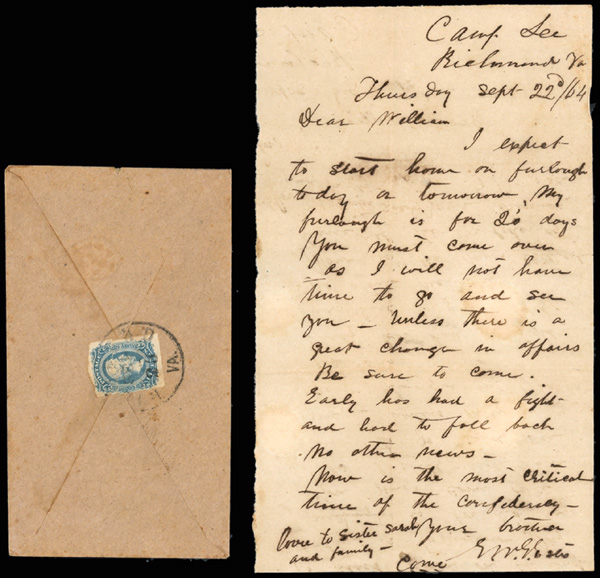 Camp Lee
Richmond Va
Thursday Sept 22d/64
Dear William
I expect
to start home on furlough
today or tomorrow, My
furlough is for 20 days
You must come over
as I will not have
time to go and see
you – Unless there is a
great change in affairs
Be sure to come.
Early has had a fight
and had to fall back
No other news –
Now is the most critical
time of the confederacy –
Love to Sister Sarah
and family –
Your brother
Come
VA.